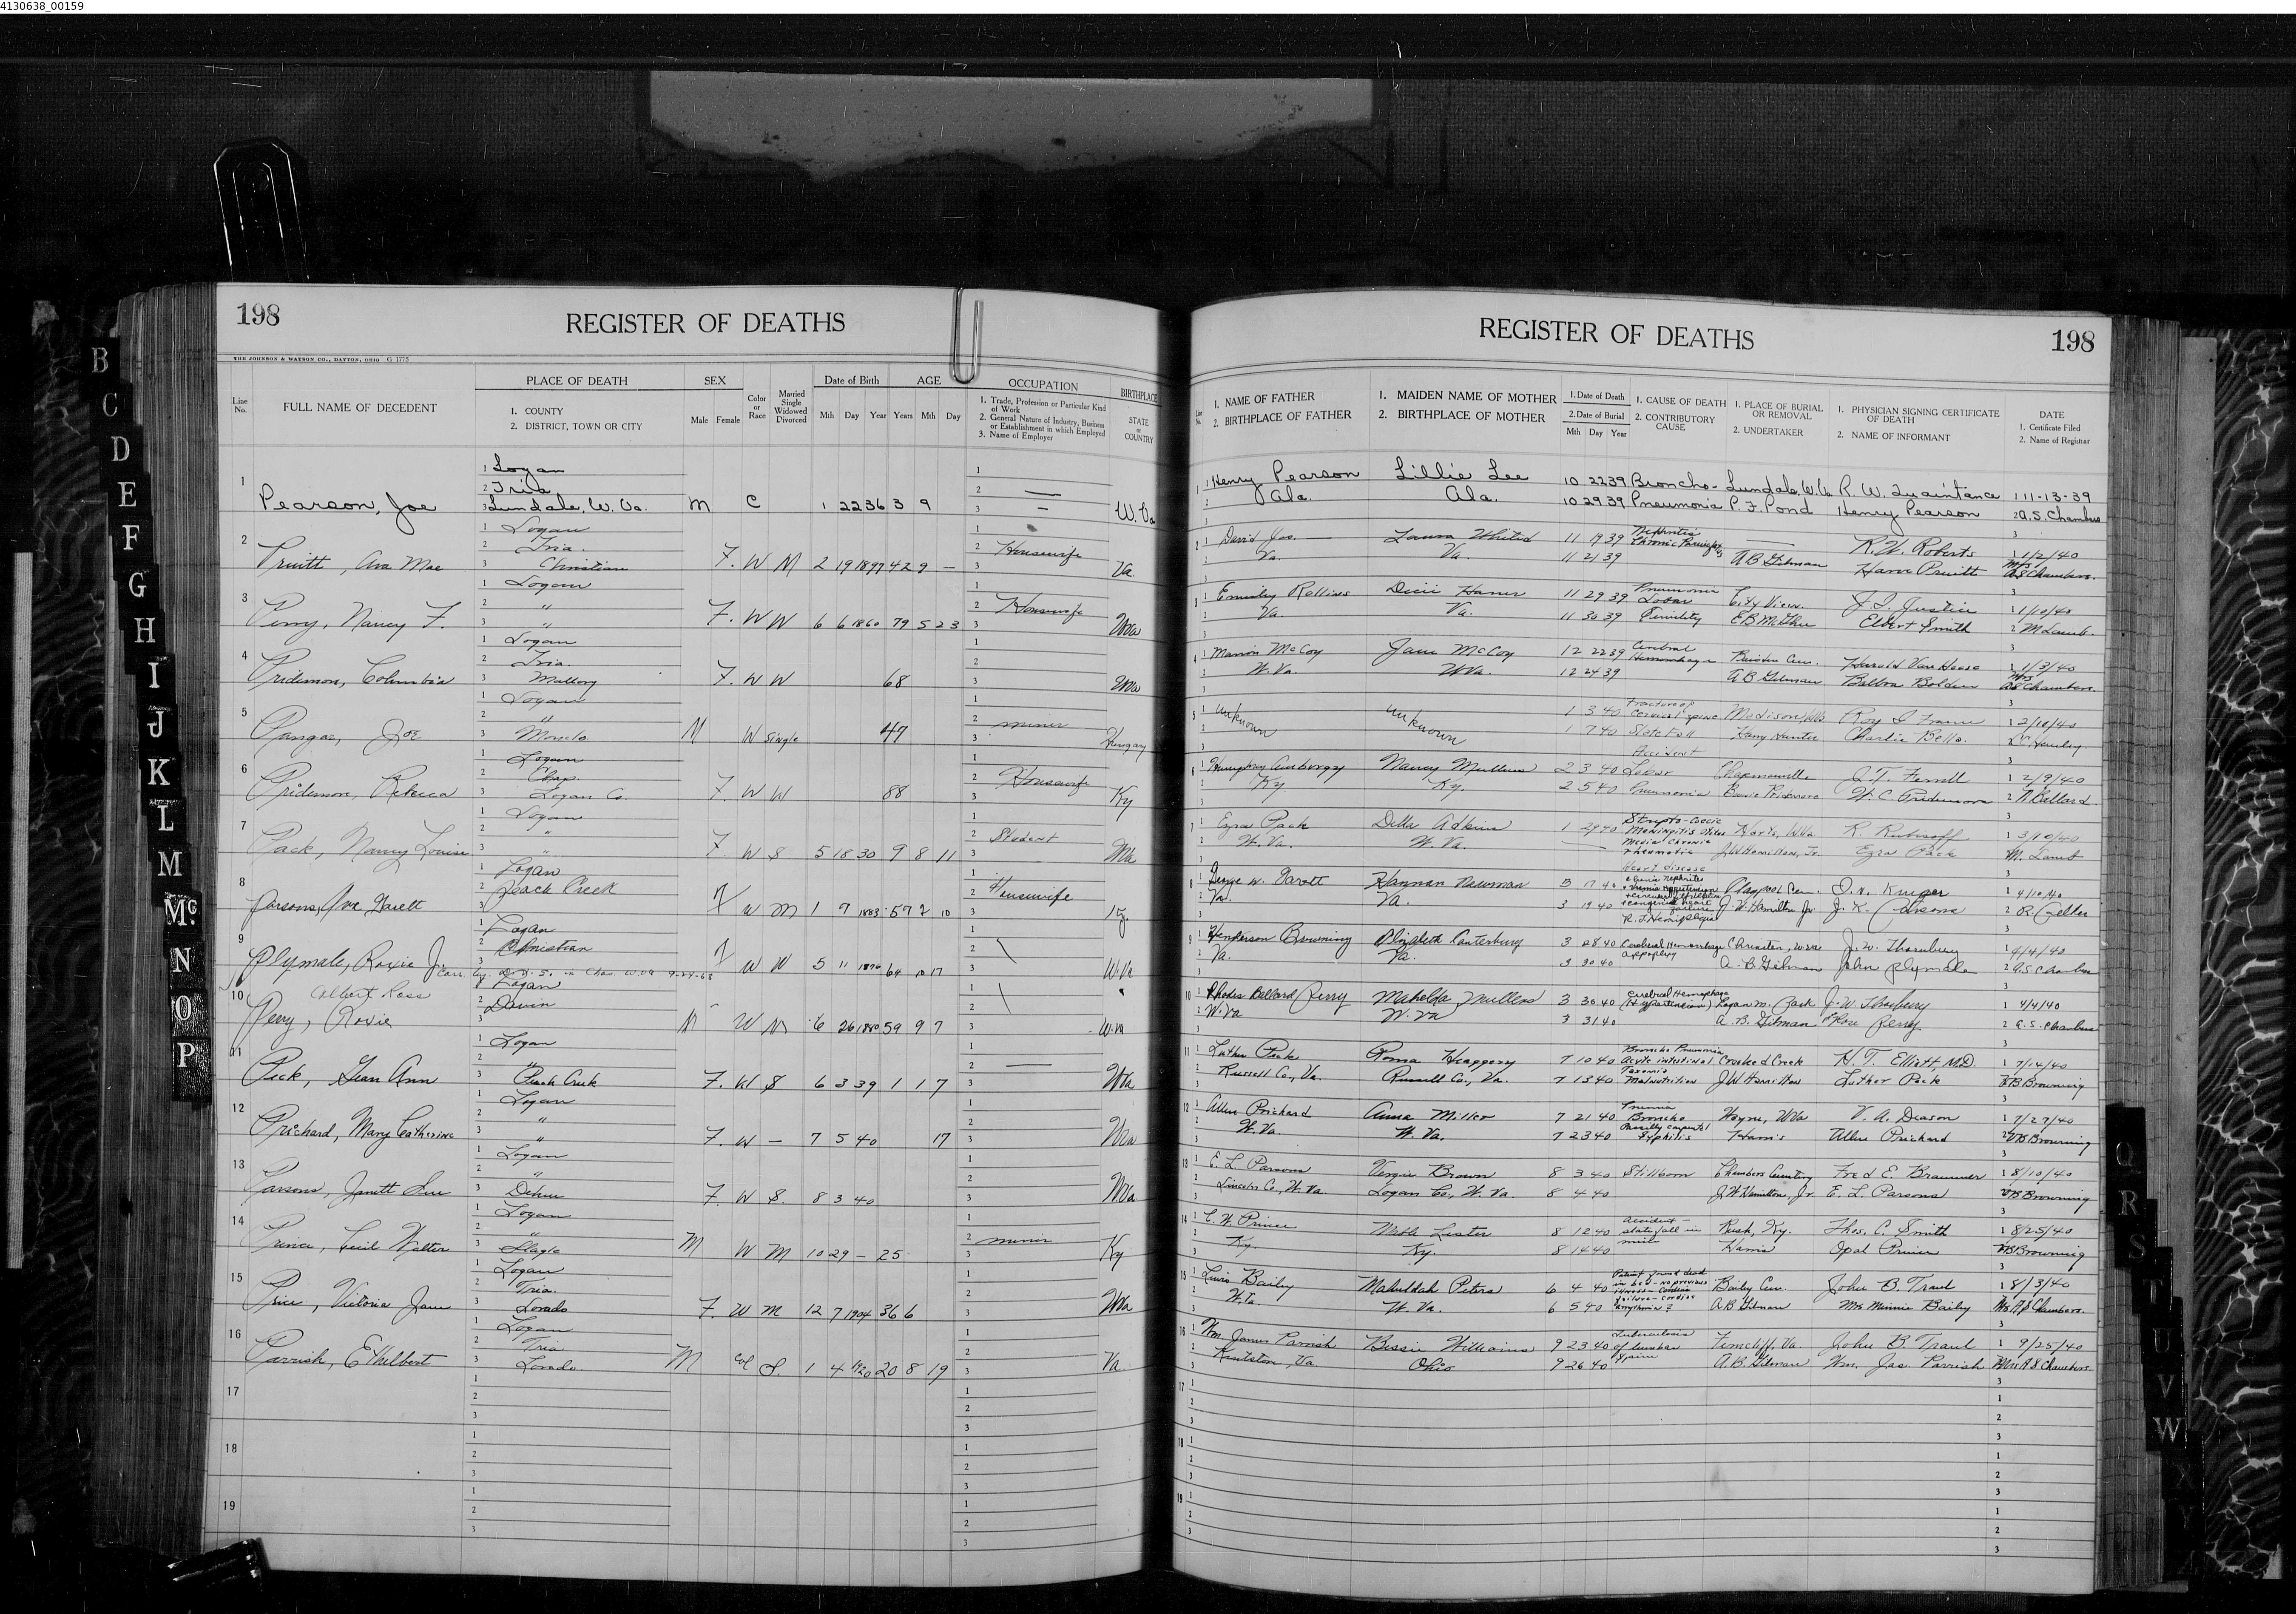 4130638_00159
198
REGISTER OF DEATHS
THE JOHNSON & WATSON CO., DAYTON, OHIO G 1775
Line No.
FULL NAME OF DECEDENT
PLACE OF DEATH
1. COUNTY
2. DISTRICT, TOWN OR CITY
SEX
Male Female
Color or Race
Married Single Widowed Divorced
Date of Birth
Mth Day Year
AGE
Years Mth Day
OCCUPATION
1. Trade, Profession or Particular Kind of Work
2. General Nature of Industry, Business or Establishment in which Employed
3. Name of Employer
BIRTHPLACE
STATE or COUNTRY
1 Logan
2 Tria
1 Pearson, Joe 3 Lundale, W. Va. M C 1 22 36 3 9 W. Va
1 Logan
2 Tria.
2 Pruitt, Ava Mae 3 Christian F. W M 2 19 1897 42 9 — Housewife Va.
1 Logan
2 "
3 Perry, Nancy F. 3 " F. W W 6 6 1860 79 5 23 Housewife WVa
1 Logan
2 Tria.
4 Pridemon, Columbia 3 Mallory F. W W 68 WVa
1 Logan
2 "
5 Joe 3 M W Single 47 miner Hungary
1 Logan
2 Chap.
6 Pridemon, Rebecca 3 Logan Co. F. W W 88 Housewife Ky
1 Logan
2 "
7 Pack, Nancy Louise 3 " F. W S 5 18 30 9 8 11 Student WVa
1 Logan
2 Peach Creek
8 Parsons, Garett F W M 1 7 1883 57 2 10 Housewife
1 Logan
2 Christian
9 Plymale, Roxie J. W W 5 11 1876 64 10 17 W.Va
1 Logan
Albert Ross
2 Davin
10 Perry, Roxie M W M 6 26 1880 59 9 7 W.Va
1 Logan
2 "
11 Peck, Jean Ann 3 Peach Creek F. W S 6 3 39 1 1 7 WVa
1 Logan
2 "
12 Prichard, Mary Catherine 3 " F. W — 7 5 40 17 WVa
1 Logan
2 "
13 Parsons, Janett Sue 3 Dehue F. W S. 8 3 40 WVa
1 Logan
2 "
14 Prince, Cecil Walter 3 Slagle M W M 10 29 — 25 miner Ky
1 Logan
2 Tria.
15 Price, Victoria Jane 3 Lorado F. W M 12 7 1904 36 6 WVa
1 Logan
2 Tria
16 Parrish, Ethelbert 3 Lorado M Col S. 1 4 1920 20 8 19 Va.
17
18
19
REGISTER OF DEATHS
198
Line No.
1. NAME OF FATHER
2. BIRTHPLACE OF FATHER
1. MAIDEN NAME OF MOTHER
2. BIRTHPLACE OF MOTHER
1. Date of Death
2. Date of Burial
Mth Day Year
1. CAUSE OF DEATH
2. CONTRIBUTORY CAUSE
1. PLACE OF BURIAL OR REMOVAL
2. UNDERTAKER
1. PHYSICIAN SIGNING CERTIFICATE OF DEATH
2. NAME OF INFORMANT
DATE
1. Certificate Filed
2. Name of Registrar
1 Henry Pearson Lillie Lee 10 22 39 Broncho- Lundale, W. Va R. W. Quaintance 1 11-13-39
Ala. Ala. 10 29 39 Pneumonia P. F. Pond Henry Pearson 2 A. S. Chambers
2 David Jas. Laura Whited 11 19 39 Nephritis Chronic — R. W. Roberts 1 1/2/40
Va. Va. 11 21 39 A B Gilman Harve Pruitt Mrs A S Chambers.
3 Rollins 11 29 39 Pneumonia Lobar City View. 1 1/10/40
Va. Va. 11 30 39 Senility Elbert Smith 2 M Lamb.
4 Marion McCoy Jane McCoy 12 22 39 Cerebral Hemorrhage Harold Van Hoose 1 1/3/40
W. Va. W.Va. 12 24 39 A B Gilman Balboa Bolden Mrs A S Chambers.
5 Unknown Unknown 1 3 40 Fracture of Cervical Spine Madison, W.Va 1 2/10/40
1 7 40 Slate Fall Harry Hunter Charlie Bello.
Accident
6 Nancy Mullins 2 3 40 Lobar Chapmanville J. T. Ferrell 1 2/9/40
Ky. Ky. 2 5 40 Pneumonia W. C. Pridemore 2 N Ballard
7 Ezra Pack Della Adkins 1 29 40 Strepto-Coccic Meningitis Otitis Harts, W.Va 1 3/10/40
W. Va. W. Va. — Media Chronic Rheumatic J W Hamilton, Jr. Ezra Pack M. Lamb
Heart disease
8 George W. Garett Hannan Newman 3 17 40 Claypool Cem. 1 4/10/40
Va. Va. 3 19 40 J. W. Hamilton Jr J. K. Parsons
9 Henderson Browning Elizabeth Canterbury 3 28 40 Cerebral Hemorrhage Christen, W.Va J. W. Thornbury 1 4/4/40
Va. Va. 3 30 40 appoplexy A. B. Gilman John Plymale 2 A. S. Chambers
10 Rhodes Ballard Perry Mahelda Mullens 3 30 40 Cerebral Hemorrhage (Hypertension) Logan M. Park J. W. Thornbury 1 4/4/40
W. Va W. Va 3 31 40 A. B. Gilman Perry 2 A. S. Chambers
11 Luther Peck Roma 7 10 40 Broncho Pneumonia Acute intestinal Crooked Creek H. T. Elliott, M.D. 1 7/14/40
Russell Co., Va. Russell Co., Va. 7 13 40 Toxemia Malnutrition J W Hamilton Luther Peck V B Browning
12 Allen Prichard Anna 7 21 40 Broncho Wayne, W.Va V. A. Deason 1 7/27/40
W. Va. W. Va. 7 23 40 Possibly congenital Syphilis Harris Allen Prichard 2 V B Browning
13 E. L. Parsons Virgie Brown 8 3 40 Stillborn Chambers Cemetery Fred E. Brammer 1 8/10/40
Lincoln Co., W. Va. Logan Co., W. Va. 8 4 40 J. W. Hamilton, Jr. E. L. Parsons V B Browning
14 E. W. Prince Lester 8 12 40 accident - slate fall in mine Rush, Ky. Thos. C. Smith 1 8/25/40
Ky. Ky. 8 14 40 Harris Opal Prince V B Browning
15 Lewis Bailey Mahuldah Peters 6 4 40 Patient found dead in bed - no previous illness - Cardiac failure - cardiac arrythmia? Bailey Cem. John B. Traul 1 8/13/40
W. Va. W. Va. 6 5 40 A B Gilman Mrs Minnie Bailey Mrs. A S Chambers.
16 Wm. James Parrish Bessie Williams 9 23 40 Tuberculosis of lumbar Spine Ferncliff, Va John B. Traul 1 9/25/40
Va. Ohio 9 26 40 A. B. Gilman Wm. Jas. Parrish Mrs. A. S. Chambers
17
18
19
B
C
D
E
F
G
H
I
J
K
L
M
Mc
N
O
P
Q
R
S
U
V
W